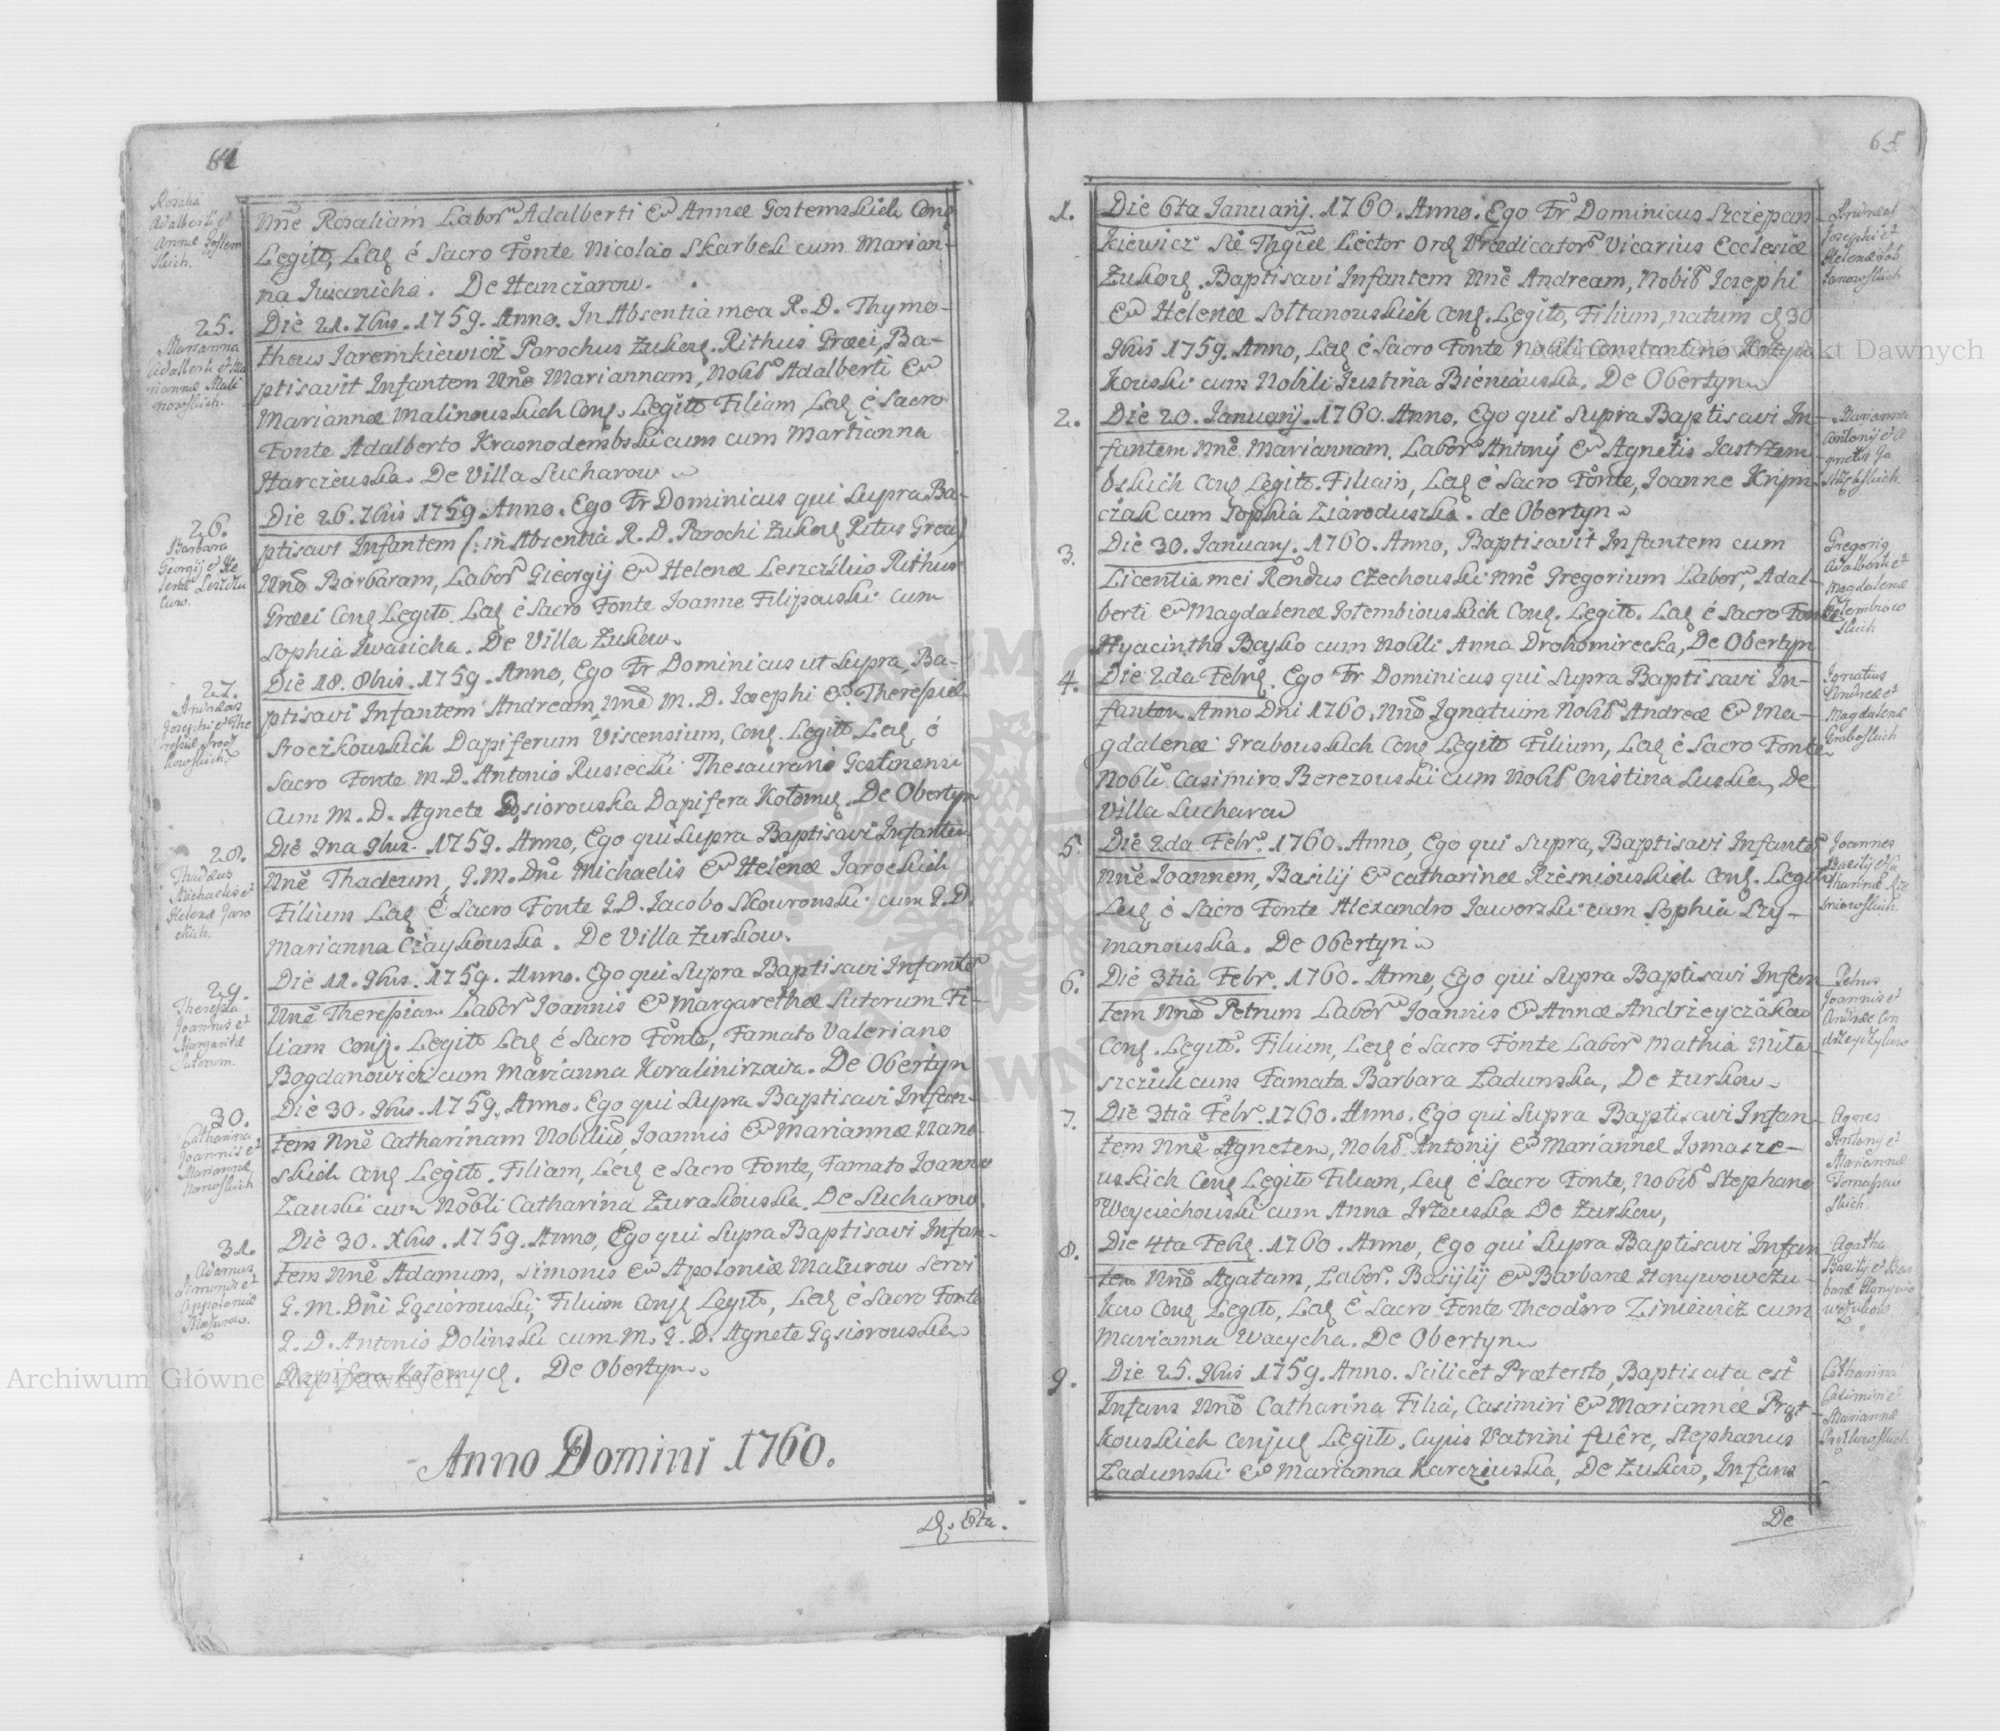 64
Rosalia
Adalberti et
Annæ Gostem
skich.
Nñe Rosaliam Labor. Adalberti & Annæ Gostemskich Conj
Legito, Laq é Sacro Fonte Nicolao Skarbek cum Marian-
na Iwanicha. De Hanczarow.
25.
Marianna
Adalberti et Ma
riannæ Mali
nowskich.
Die 21. 7bris. 1759. Anno. In Absentia mea R. D. Thymo-
theus Jaremkiewicz Parochus Zukoq. Rithus Græci, Ba-
ptisavit Infantem Nñe Mariannam, Nobił Adalberti &
Mariannæ Malinowskich Conj. Legito Filiam Laq é Sacro
Fonte Adalberto Krasnodembski cum cum Martianna
Harczewska. De Villa Sucharow
26.
Barbara
Georgij et He
lenæ Leszczu
kow.
Die 26. 7bris 1759. Anno. Ego Fr Dominicus qui Supra Ba-
ptisavi Infantem (: in Absentia R. D. Parochi Zukoq Ritus Græci)
Nñe Barbaram, Labor. Gieorgij & Helenæ Leszczukow Rithus
Græci Conq Legito. Laq é Sacro Fonte Joanne Filipowski cum
Sophia Iwasicha. De Villa Zukow
27.
Andreas
Josephi et The
resiæ Srocz
kowskich
Die 18. 8bris. 1759. Anno, Ego Fr Dominicus ut Supra, Ba-
ptisavi Infantem Andream Nñe M. D. Josephi & Theresiæ
Sroczkowskich Dapiferum Viscensium, Conq. Legito Laq é
Sacro Fonte M. D. Antonio Rusiecki Thesaurario Gostinensi
Cum M. D. Agnete Gąsiorowska Dapifera Kołomyq. De Obertyn
28.
Thadæus
Michaelis et
Helenæ Jaro
ckich.
Die 9na 9bris. 1759. Anno, Ego qui Supra Baptisavi Infantem
Nñe Thadeum, G. M. Dñi Michaelis & Helenæ Jarockich
Filium Laq é Sacro Fonte G. D. Jacobo Skowronski cum G. D.
Marianna Czaykowska. De Villa Zurkow.
29.
Theresia
Joannis et
Margaritæ
Sutorum.
Die 11. 9bris. 1759. Anno. Ego qui Supra Baptisavi Infantem
Nñe Theresiam Labor Joannis & Margarethæ Sutorum Fi-
liam Conj. Legito Laq é Sacro Fonte, Famato Valeriano
Bogdanowicz cum Marianna Koralinirzowa. De Obertyn
30.
Catharina
Joannis et
Mariannæ
Nanowskich
Die 30. 9bris. 1759. Anno. Ego qui Supra Baptisavi Infan-
tem Nñe Catharinam Nobiliũ Joannis & Mariannæ Nano-
skich Conq Legito. Filiam, Leq e Sacro Fonte, Famato Joanne
Zawski cum Nobli Catharina Zurakowska. De Sucharow.
31.
Adamus
Simonis et
Appoloniæ
Mazurow.
Die 30. Xbris. 1759. Anno, Ego qui Supra Baptisavi Infan-
tem Nñe Adamum, Simonis & Apoloniæ Mazurow Servi
G. M. Dñi Gąsiorowski, Filium Conjq Legito, Leq é Sacro Fonte
G. D. Antonio Dolinski cum M. G. D. Agnete Gąsiorowska
Dapifera Kołomycq. De Obertyn.
Anno Domini 1760.
D. 6ta.
65
1.
Die 6ta Januarij. 1760. Anno. Ego Fr Dominicus Szczepan-
kiewicz Sæ Thgiæ Lector Ord Prædicator Vicarius Ecclesiæ
Zukoq. Baptisavi Infantem Nñe Andream, Nobił Josephi
& Helenæ Sołtanowskich Conq. Legito, Filium, natum d 30
9bris 1759. Anno, Laq é Sacro Fonte Nobili Constantino
kowski cum Nobili Justina Bieniawska. De Obertyn
Andreas
Josephi et
Helenæ Soł
tanowskich
2.
Die 20. Januarij. 1760. Anno. Ego qui Supra Baptisavi In-
fantem Nñe Mariannam. Labor Antonij & Agnetis Jastrzem-
bskich Conq Legito. Filiam, Laq é Sacro Fonte, Joanne Krym-
czak cum Sophia Ziaroduszka. de Obertyn
Marianna
Antonij et A
gnetis Ja
strzębskich.
3.
Die 30. Januarij. 1760. Anno, Baptisavit Infantem cum
Licentia mei Rendus Czechowski Nñe Gregorium Labor, Adal-
berti & Magdalenæ Gołembiowskich Conq. Legito. Laq é Sacro Fonte
Hyacintho Bayko cum Nobili Anna Drohomirecka, De Obertyn
Gregorig
Adalberti et
Magdalenæ
Gołembiow
skich
4.
Die 2da Febrq. Ego Fr Dominicus qui Supra Baptisavi In-
fantem Anno Dni 1760. Nñe Ignatium Nobił Andreæ & Ma-
gdalenæ Grabowskich Conq Legito Filium, Laq é Sacro Fonte
Nobli Casimiro Berezowski cum Nobił Cristina Luska, De
Villa Sucharow
Ignatius
Andreæ et
Magdalenæ
Grabowskich
5.
Die 2da Febr. 1760. Anno, Ego qui Supra, Baptisavi Infantem
Nñe Joannem, Basilij & Catharinæ Rzesniowskich Conq. Legito
Leq é Sacro Fonte Alexandro Jaworski cum Sophia Szy-
manowska. De Obertyn
Joannes
Basilij et Ca
tharinæ Rze
sniowskich.
6.
Die 3tia Febr. 1760. Anno, Ego qui Supra Baptisavi Infan-
tem Nñe Petrum Labor Joannis & Annæ Andrzeyczakow
Conq. Legito. Filium, Leq é Sacro Fonte Labor Mathia Mita
szczuk cum Famata Barbara Ładunska, De Zurkow
Petrus
Joannis et
Annæ An
drzeyczykow
7.
Die 3tia Febr. 1760. Anno. Ego qui Supra Baptisavi Infan-
tem Nñe Agnetem, Nobił Antonij & Mariannæ Tomasze-
wskich Conq Legito Filiam, Luq é Sacro Fonte, Nobił Stephano
Woyciechowski cum Anna Irzewska De Zurkow,
Agnes
Antonij et
Mariannæ
Tomaszew
skich.
8.
Die 4ta Febq. 1760. Anno, Ego qui Supra Baptisavi Infan-
tem Nñe Agatam, Labor. Basijlij & Barbaræ Honywowczu-
kow Conq Legito, Laq é Sacro Fonte Theodoro Ziniewicz cum
Marianna Wacycha. De Obertyn
Agatha
Basilij et Bar
baræ Honywo
wczukow
9.
Die 25. 9bris 1759. Anno. Scilicet Præterito, Baptisata est
Infans Nñe Catharina Filia, Casimiri & Mariannæ Prąt-
kowskich Conjuq Legito. Cujus Patrini fuêre, Stephanus
Ładunski & Marianna Karczewska, De Zukow, Infans
Catharina
Casimiri et
Mariannæ
Prątkowskich
De
Archiwum Główne Akt Dawnych
Archiwum Główne Akt Dawnych